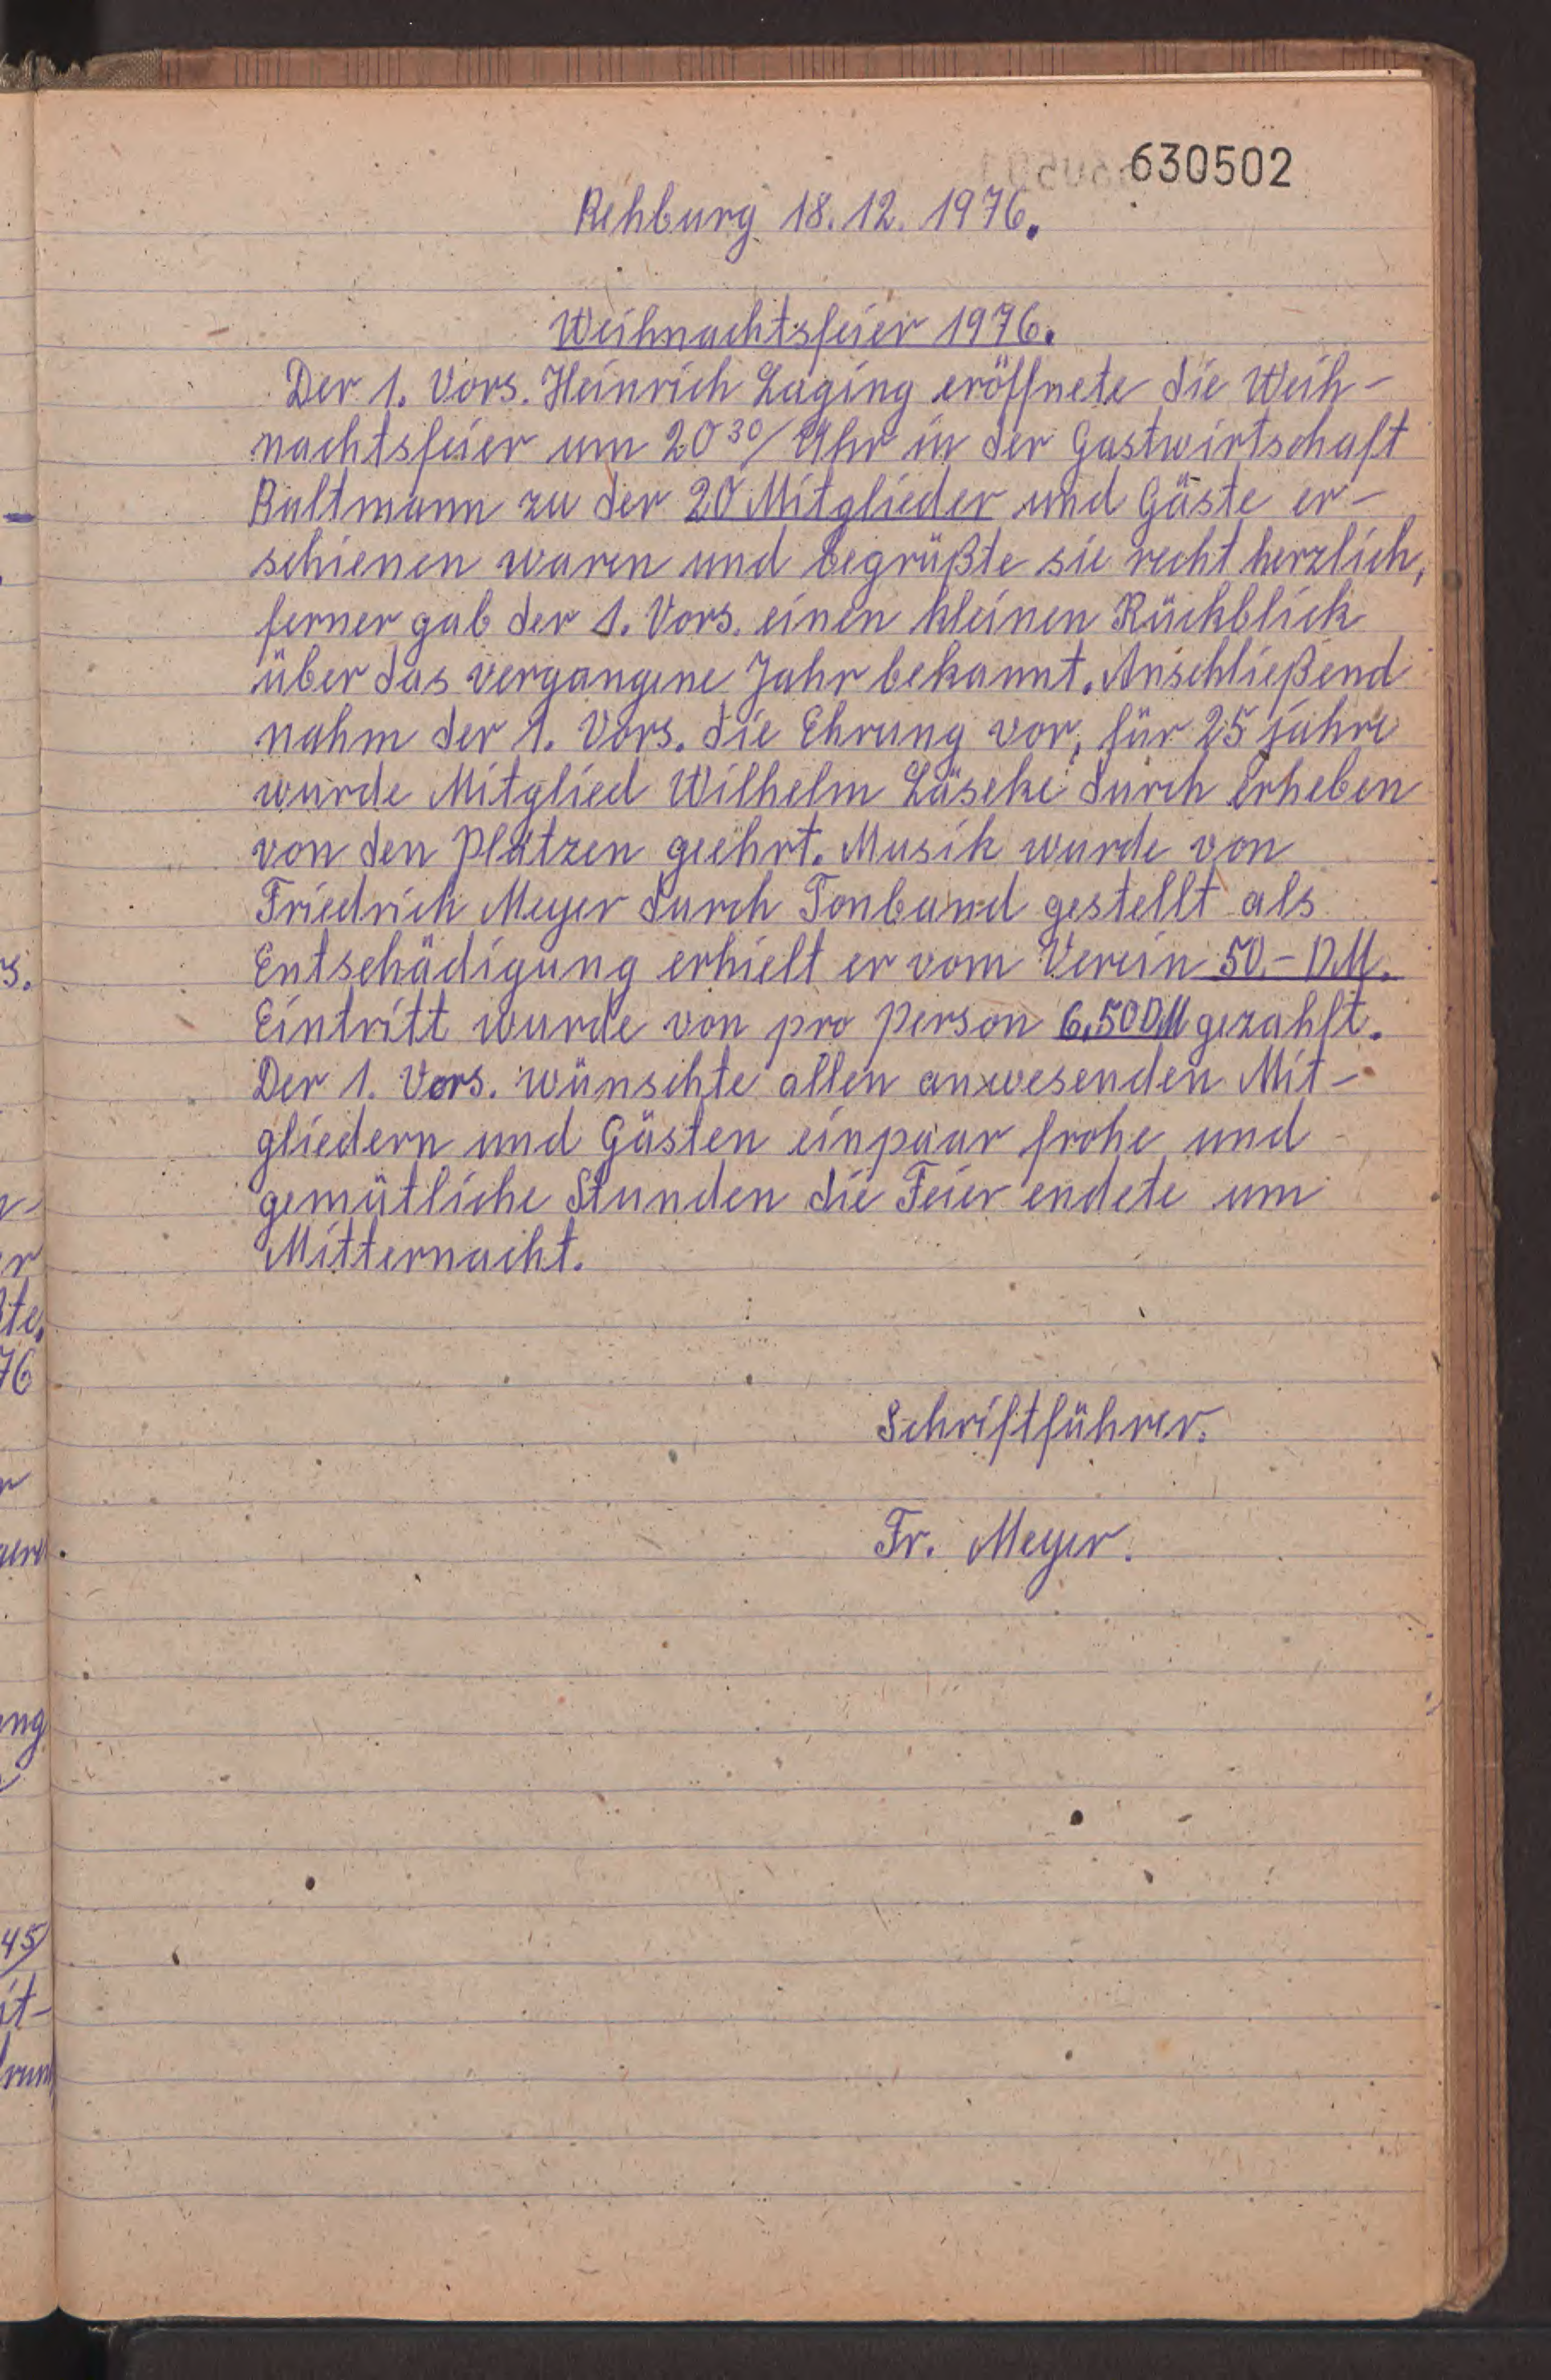 630502
Rehburg 18.12.1976.
Weihnachtsfeier 1976.
Der 1. Vors. Heinrich Laging eröffnete die Weih-
nachtsfeier um 20³⁰/ Uhr in der Gastwirtschaft
Bultmann zu der 20 Mitglieder und Gäste er-
schienen waren und begrüßte sie recht herzlich,
ferner gab der 1. Vors. einen kleinen Rückblick
über das vergangene Jahr bekannt. Anschließend
nahm der 1. Vors. die Ehrung vor, für 25 jahre
wurde Mitglied Wilhelm Läseke durch Erheben
von den Plätzen geehrt. Musik wurde von
Friedrich Meyer durch Tonband gestellt als
Entschädigung erhielt er vom Verein 50.- DM.
Eintritt wurde von pro Person 6,50 DM gezahlt.
Der 1. Vors. wünschte allen anwesenden Mit-
gliedern und Gästen einpaar frohe und
gemütliche Stunden die Feier endete um
Mitternacht.
Schriftführer.
Fr. Meyer.